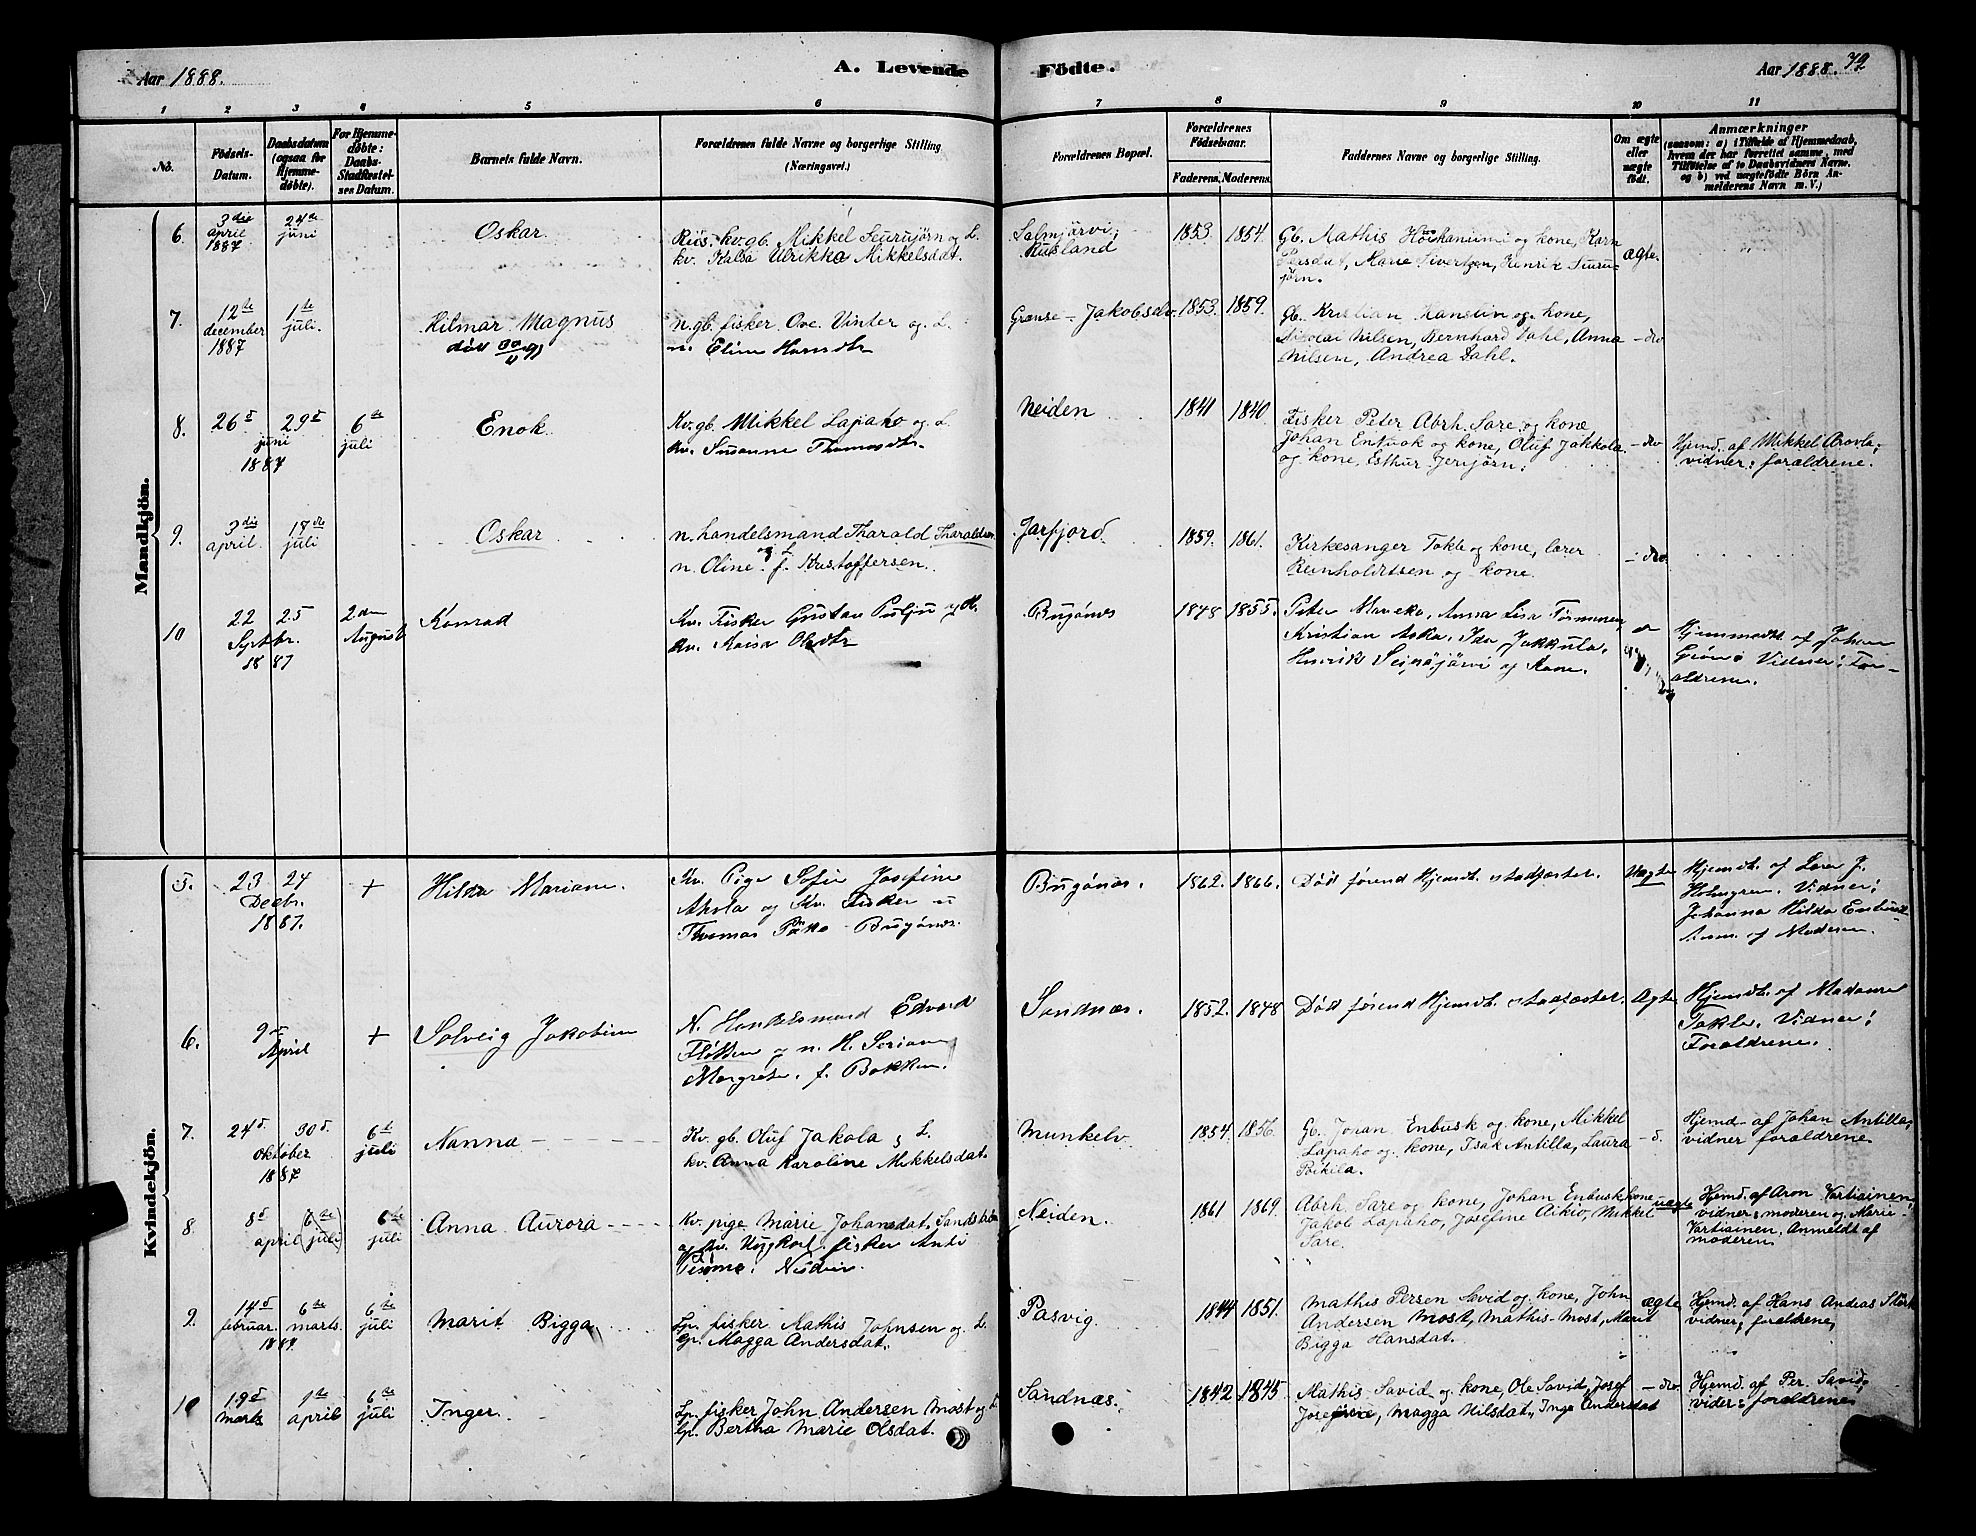 Aar 1888.
A. Levende Födte.
Aar 1888. 72
1 2 3 4 5 6 7 8 9 10 11
No.
Födsels-Datum.
Daabsdatum (ogsaa for Hjemme-döbte).
For Hjemme-döbte: Daabs-Stadfæstel-ses Datum.
Barnets fulde Navn.
Forældrenes fulde Navne og borgerlige Stilling (Næringsvei.)
Forældrenes Bopæl.
Forældrenes Födselsaar.
Faderens. Moderens.
Faddernes Navne og borgerlige Stilling.
Om ægte eller uægte födt.
Anmærkninger
(saasom: a) i Tilfælde af Hjemmedaab, hvem der har forrettet samme, med Tilföielse af to Daabsvidners Navne, og b) ved uægtefödte Börn An-melderens Navn m. V.)
Mandkjön.
6. 3die april 1887
24de juni
Oskar
kv. gb. Mikkel Suurujörn og L.
kv. Kaisa Ulrikka Mikkelsdat.
Salmjärvi, Rusland
1853. 1854.
Gb. Mathis og kone, Karn
Larsdat, Marie Sivertzen, Henrik Suuru-
jörn.
ægte.
7. 12te december 1887
1te juli.
Hilmar Magnus
n. gb. fisker Ove Vinter og L.
n. Eline
Grænse-Jakobselv.
1853. 1859.
Gb. Kristian og kone,
Nikolai Nilsen, Bernhard Dahl, Anna
Nilsen, Andrea Dahl.
-do
8. 26d 29d juni 1887
6te juli
Enok
Kv. gb. Mikkel Lapaho og L.
kv. Susanne Thomasdtr.
Neiden
1841 1840.
Fisker Peter Abrh. Sare og kone
Johan Enbusk og kone, Oluf Jakkola
og kone, Esthur Jerijörn.
-do
Hjemd. af Mikkel Aravla;
vidner: forældrene.
9. 3die april.
18de juli
Oskar
n. handelsmand Tharald Tharaldsen
og L. n. Oline f. Kristoffersen.
Jarfjord
1859. 1861.
Kirkesanger Takle og kone, lærer
Reinholdtsen og kone.
-do.
10 22 25 Septbr. 1887
2den August
Konrad
Kv. Fisker Gustav og H.
kv. Kaisa Olsdtr
Bugönes
1848 1855.
Peter, Anna Lisa
Kristian, Ida Jakkula,
Henrik Seinäjärvi og Kone.
Hjemmedbt. af Johan
Vidner: For-
ældrene.
Kvindekjön.
5. 23 24 Decbr. 1887.
+
Hilda Mariane.
Kv. Pige Sofie Josefine
Ahola og Kv. Fisker
Thomas Bugönes.
Bugönes.
1862. 1866.
Död förend Hjemdt. stadfæstes.
Uægte
Hjemdt. af Lærer J.
Holmgren. Vidner:
Johanna Hilda
Anm. af Moderen.
6. 9d April
+
Solveig Jakobine
N. Handelsmand Edvard
og n. H.
Margrete. f. Bakken.
Sandnæs.
1852. 1848
Död förend Hjemdt. stadfæstes.
Ægte
Hjemdt. af Madame
Takle. Vidner:
Forældrene.
7. 24d 30d oktober 1887
6te juli
Nanna
Kv. gb. Oluf Jakola og L.
kv. Anna Karoline Mikkelsdat.
Munkelv
1854. 1856.
Gb. Johan Enbusk og kone, Mikkel
Lapaho og kone, Isak Antilla, Laura
Poikila.
-d.
Hjemd. af Johan Antilla,
vidner forældrene.
8. 8d april
(6te juli)
6te juli
Anna Aurora
Kv. pige Marie Johansdat.
og kv. Ungkarl. fisker Anti
Neiden.
Neiden.
1861 1869.
Abrh. Sare og kone, Johan Enbusk kone
Jakob Lapaho, Josefine Aikio, Mikkel
Sare.
uægte
Hjemd. af Aron Vartiainen,
vidner: moderen og Marie
Vartiainen. Anmeldt af
moderen
9. 14d februar 6te marts. 1887
6te juli
Marit Bigga
Lp. fisker Mathis Johnsen og L.
lp. Magga Andersdat.
Pasvig.
1844 1851.
Mathis Persen Savid og kone, John
Andersen Most, Mathis Most, Marit
Bigga Hansdat.
ægte
Hjemd. af Hans Andreas
vidner; forældrene,
10 19d Marts
1te april
6te juli
Inger.
Lp. fisker John Andersen Most og L.
lp. Bertha Marie Olsdat.
Sandnæs.
1842 1845.
Mathis Savid og kone, Ole Savid, Josef
Josefsen, Magga Nilsdat., Inga Andersdat
-do.
Hjemd. af Per Savid,
vidner: forældrene